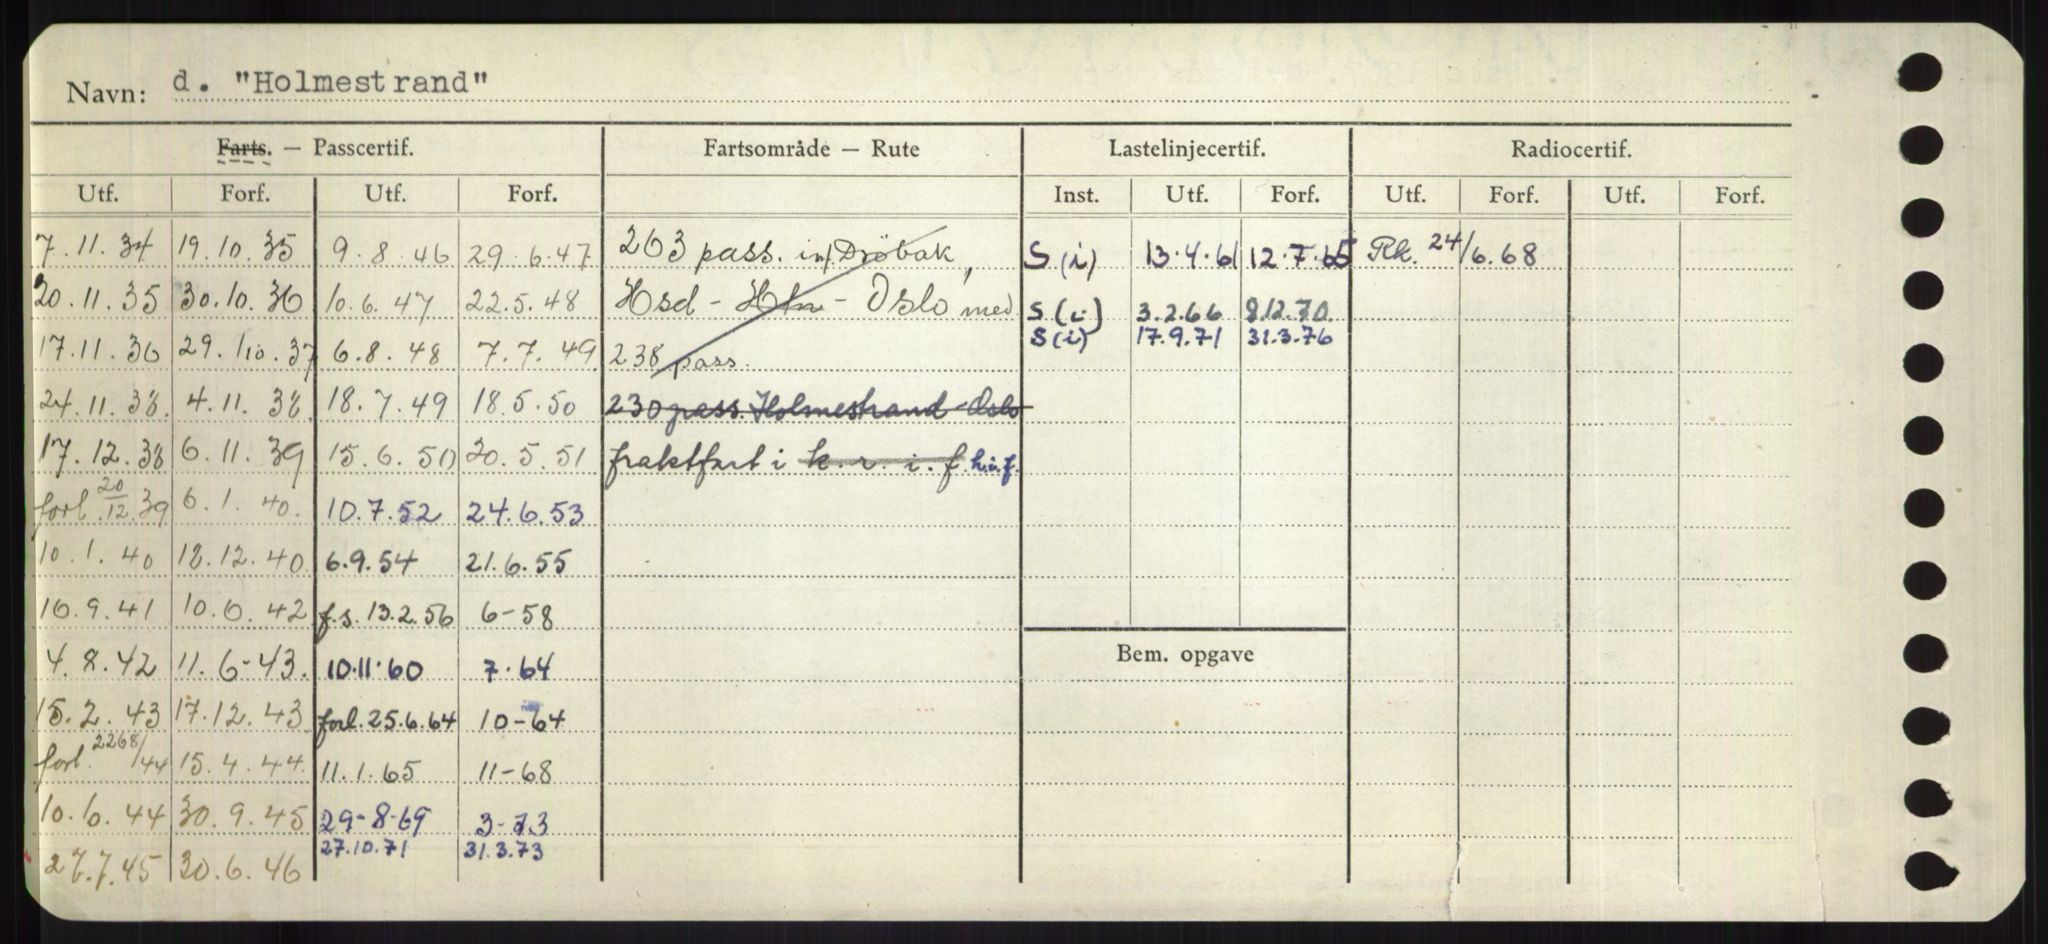 Navn: d. "Holmestrand"
Farts. — Passcertif. Fartsområde — Rute Lastelinjecertif. Radiocertif.
Utf. Forf. Utf. Forf. Inst. Utf. Forf. Utf. Forf. Utf. Forf.
7.11.34 19.10.35 9.8.46 29.6.47 263 pass. inf. Dröbak, S (i) 13.4.61 12.7.65 Rk. 24/6.68
20.11.35 30.10.36 10.6.47 22.5.48 Hsd - Htn - Oslo med S (i) 3.2.66 8.12.70.
17.11.36 29.10.37 6.8.48 7.7.49 238 pass. S (i) 17.9.71 31.3.76
24.11.38. 4.11.38. 18.7.49 18.5.50 230 pass. Holmestrand - Oslo
17.12.38 6.11.39 15.6.50 20.5.51 fraktfart i k.r.i.f. h.i.f.
forl 20/12.39 6.1.40. 10.7.52 24.6.53
10.1.40 18.12.40 6.9.54 21.6.55
16.9.41 10.6.42 f.s. 13.2.56 6-58
4.8.42 11.6-43. 10.11.60 7.64
15.2.43 17.12.43 forl. 25.6.64 10-64
forl. 2268/44 15.4.44. 11.1.65 11-68
10.6.44 30.9.45 29-8-69 3-73
27.10.71 31.3.73
27.7.45 30.6.46
Bem. opgave